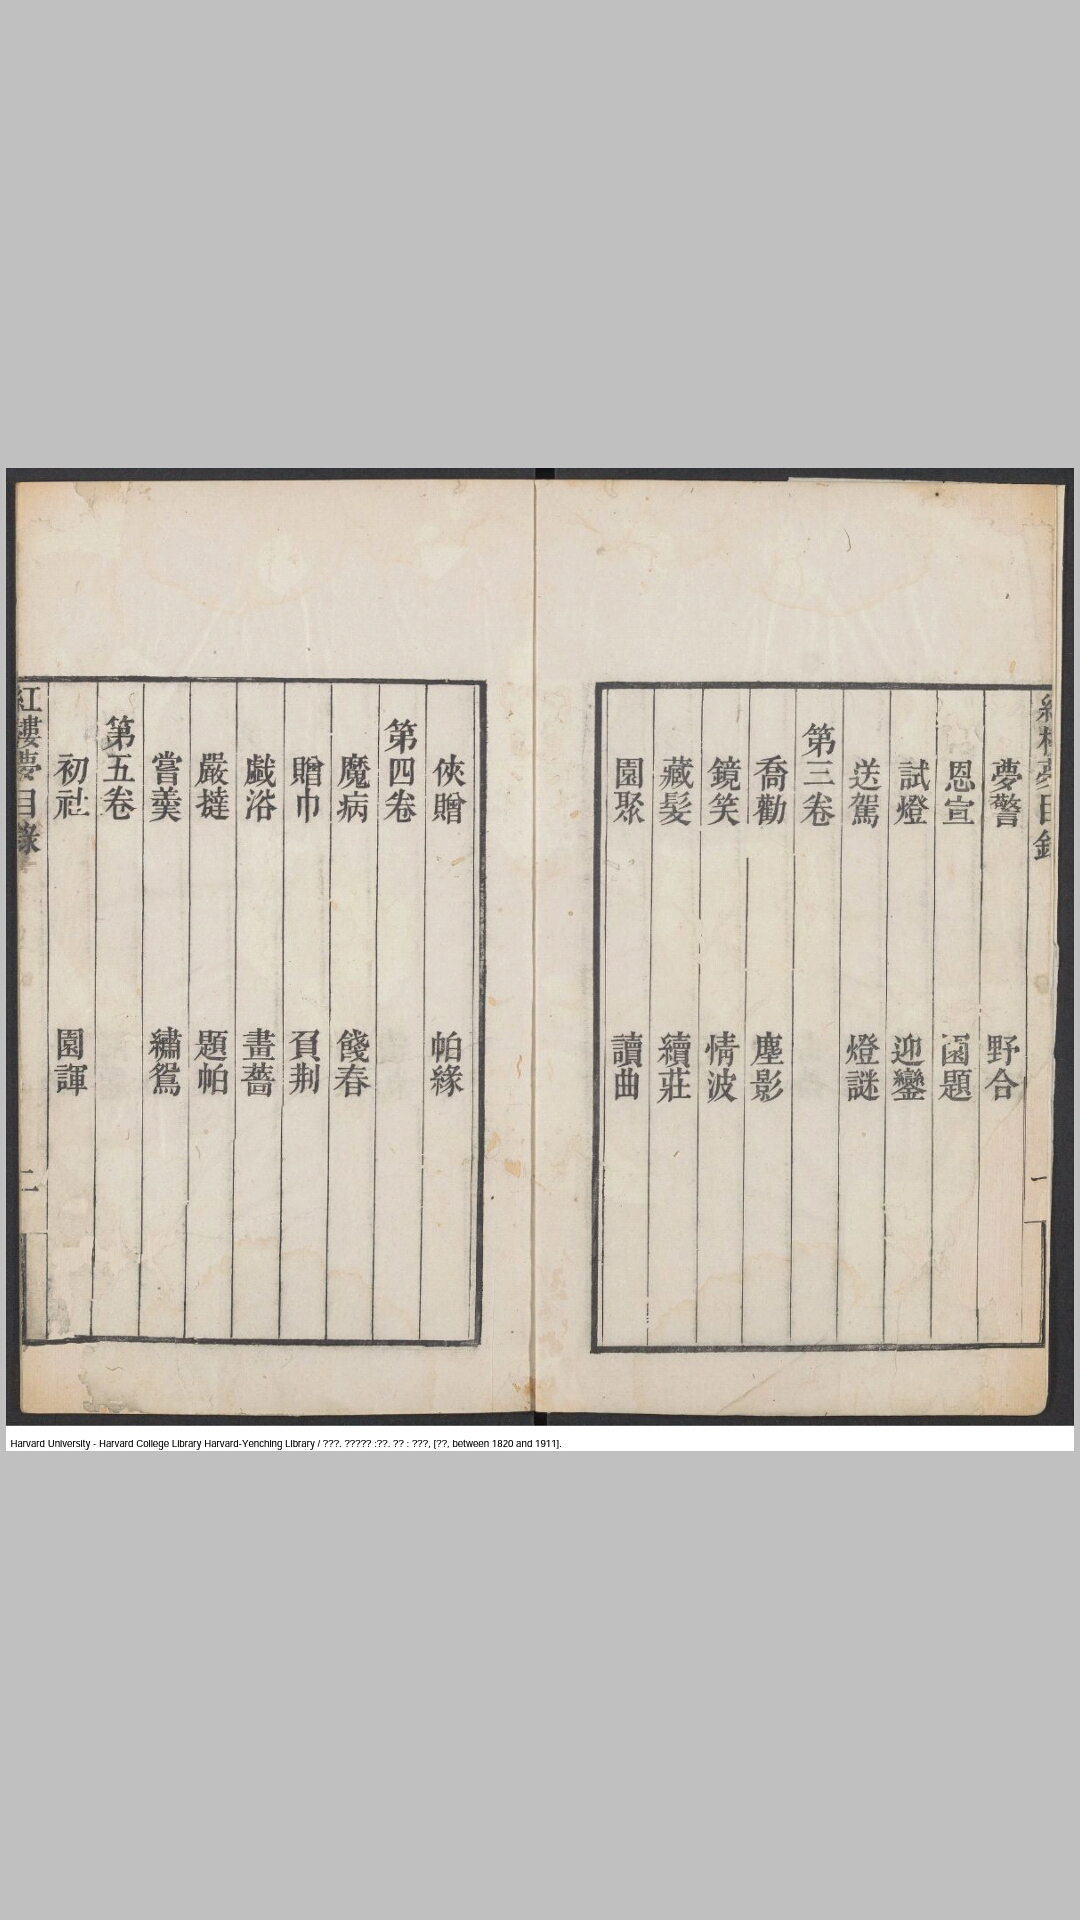 紅樓夢目錄
一
夢警 野合
恩宣 園題
試燈 迎鑾
送駕 燈謎
第三卷
喬勸 塵影
鏡笑 情波
藏髮 續莊
園聚 讀曲
俠贈 帕緣
第四卷
魔病 餞春
贈巾 負荆
戱浴 畫薔
嚴撻 題帕
嘗羹 繡鴛
第五卷
初社 園諢
紅樓夢目錄
二
Harvard University - Harvard College Library Harvard-Yenching Library / ???. ????? :??. ?? : ???, [??, between 1820 and 1911].